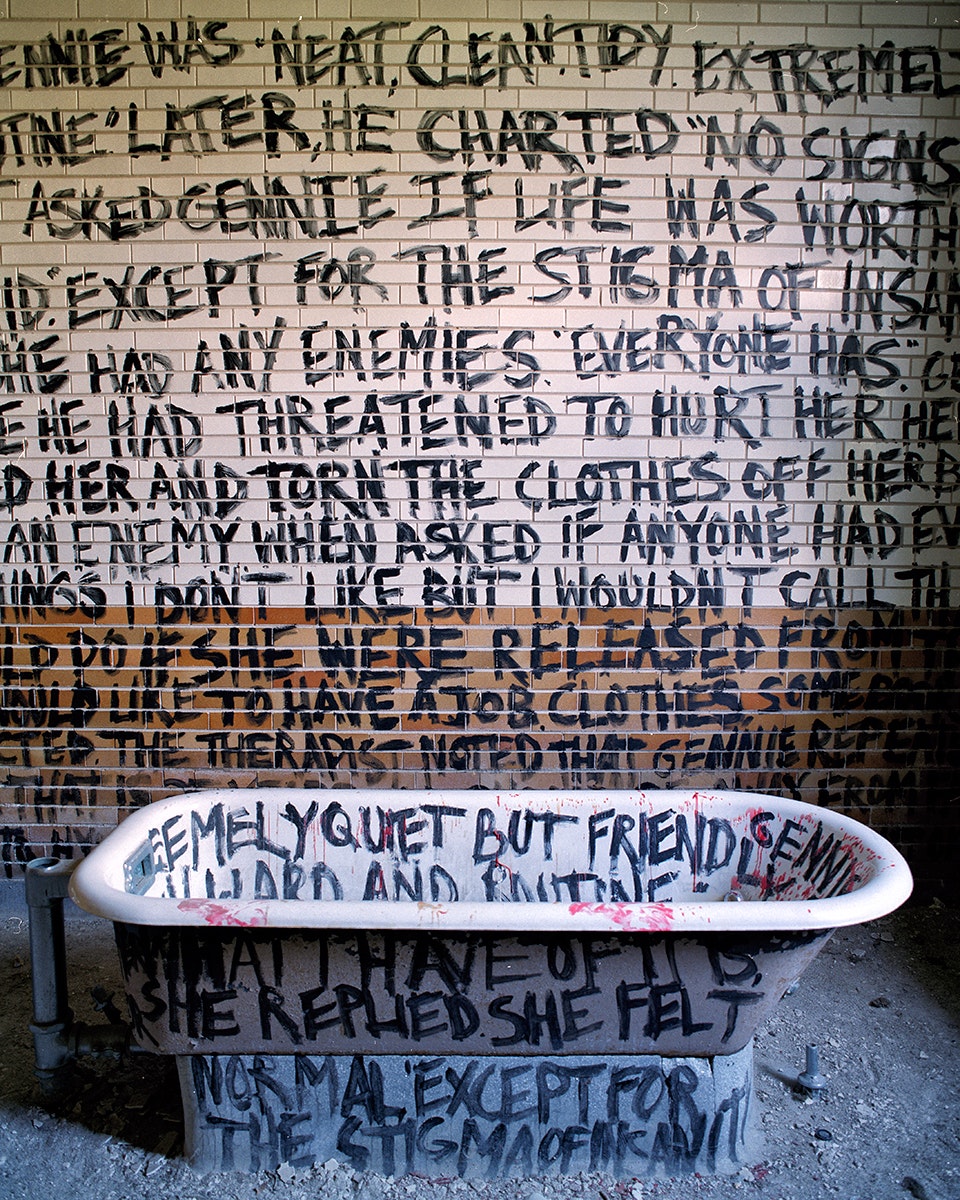 ENNIE WAS "NEAT, CLEAN, TIDY. EXTREMEL
TINE." LATER, HE CHARTED "NO SIGNS
ASKED GENNIE IF LIFE WAS WORTH
ID. "EXCEPT FOR THE STIGMA OF INSAN
HE HAD ANY ENEMIES "EVERYONE HAS." GE
E HE HAD THREATENED TO HURT HER. HE
D HER AND TORN THE CLOTHES OFF HER B
AN ENEMY WHEN ASKED IF ANYONE HAD EV
INGS I DON'T LIKE BUT I WOULDN'T CALL TH
LD DO IF SHE WERE RELEASED FROM T
OULD LIKE TO HAVE A JOB, CLOTHES, SOME
CTED. THE THERAPIST NOTED THAT GENNIE REPEA
THAT IS FROM
EMELY QUIET BUT FRIENDLY GENNIE
HARD AND ROUTINE."
WHAT I HAVE OF IT IS,
SHE REPLIED. SHE FELT
NORMAL "EXCEPT FOR
THE STIGMA OF INSANIT